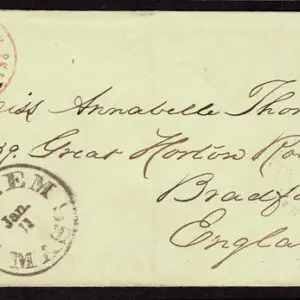 iss Annabelle Thom
39. Great Horton Ro
Bradfo
Engla
Jan.
11